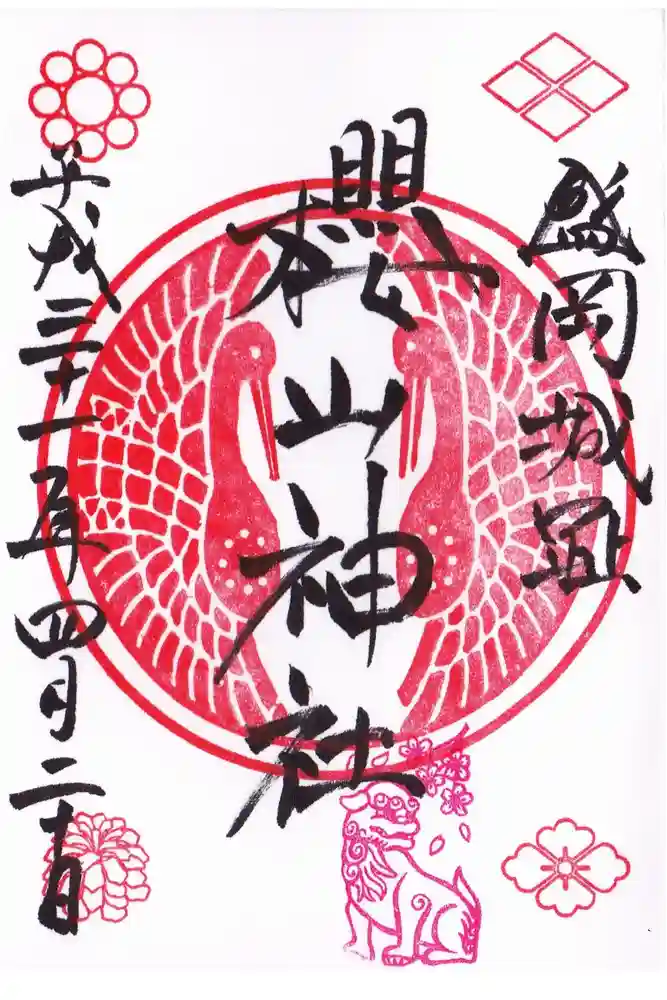 盛岡城
櫻山神社
平成三十一年四月二十日